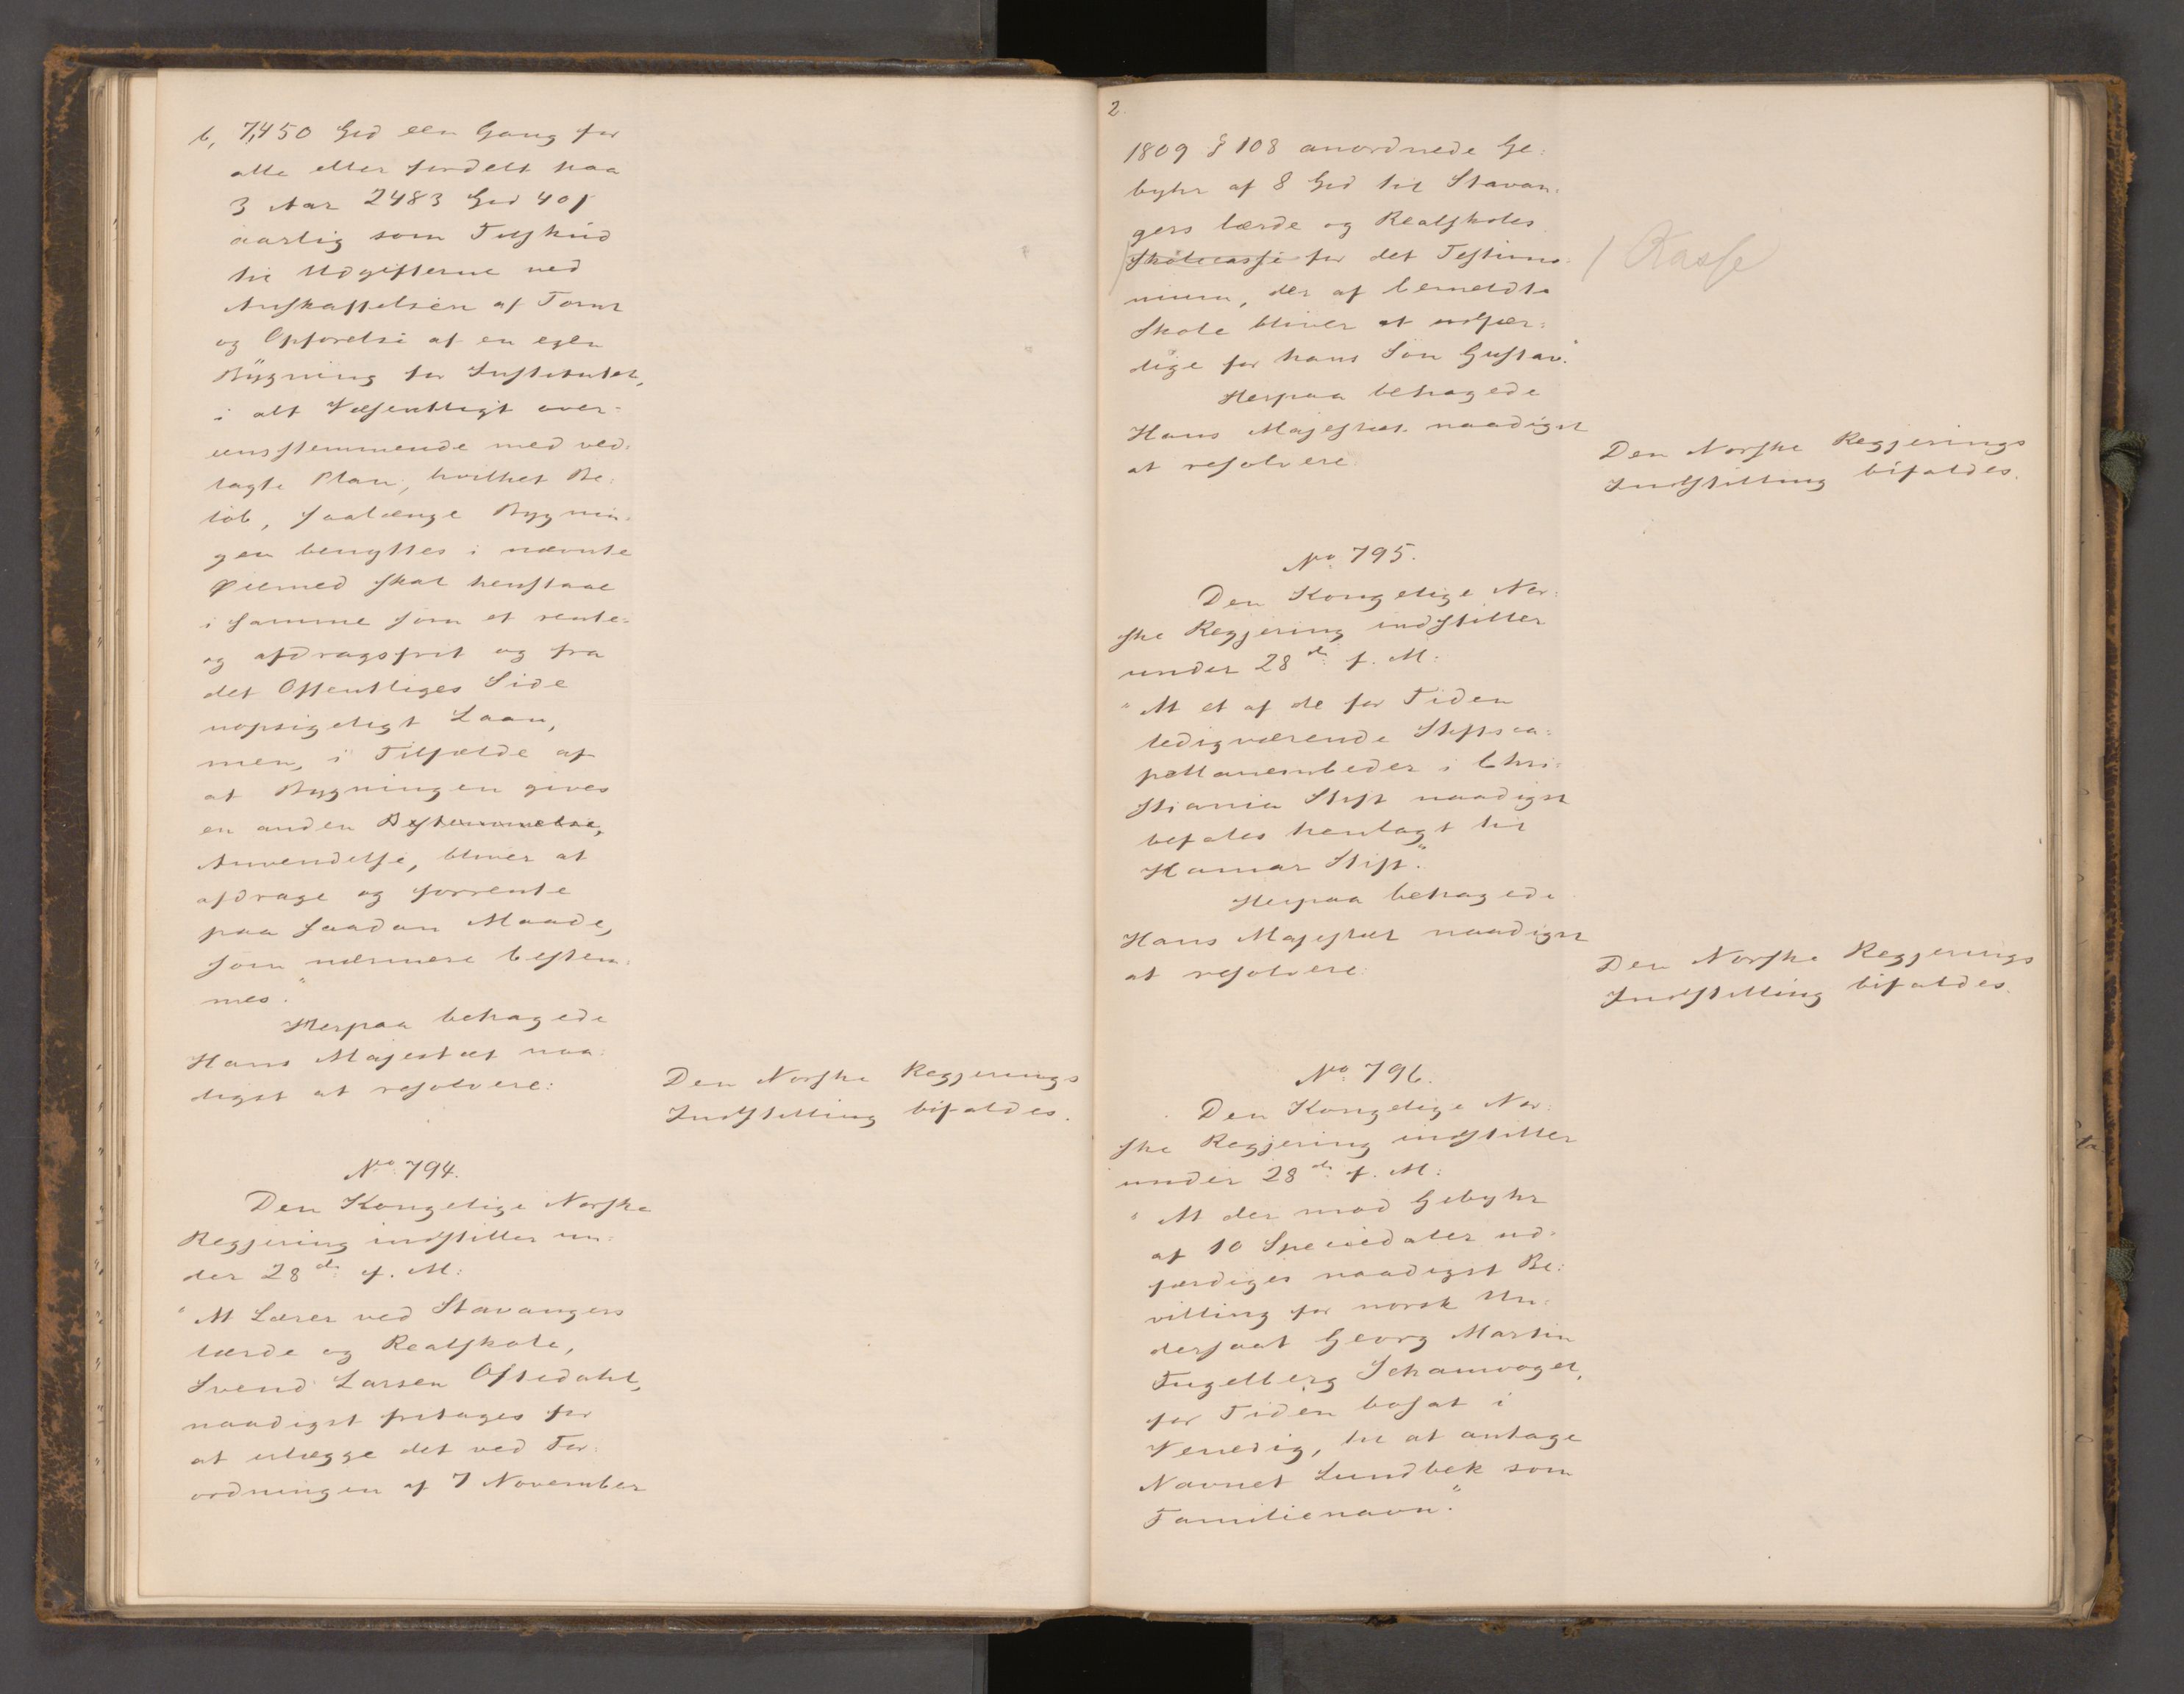 b, 7,450 Spd een Gang for
alle eller fordelt paa
3 Aar 2483 Spd 40 ſ
aarlig som Tilskud
til Udgifterne ved
Anskaffelsen af Tomt
og Opførelse af en egen
Bygning for Institutet,
i alt Væsentligt over-
eensstemmende med ved-
lagte Plan, hvilket Be-
løb, saalænge Bygnin-
gen benyttes i nævnte
Øiemed skal henstaae
i samme som et rente-
og afdragsfrit og fra
det Offentliges Side
uopsigeligt Laan,
men, i Tilfælde af
at Bygningen gives
en anden Bestemmelse,
Anvendelse, bliver at
afdrage og forrente
paa saadan Maade,
som nærmere bestem-
mes."
Herpaa behagede
Hans Majestæt naa-
digst at resolvere:
Den Norske Regjerings
Indstilling bifaldes.
No 794.
Den Kongelige Norske
Regjering indstiller un-
der 28de f. M:
"At Lærer ved Stavangers
lærde og Realskole,
Svend Larsen Oftedahl,
naadigst fritages for
at erlægge det ved For-
ordningen af 7 November
2.
1809 § 108 anordnede Ge-
byhr af 8 Spd til Stavan-
gers lærde og Realskoles
Skolecasse for det Testimo-
nium, der af bemeldte
Skole bliver at udfær-
dige for hans Søn Gustav."
/ Kasse
Herpaa behagede
Hans Majestæt naadigst
at resolvere
Den Norske Regjerings
Indstilling bifaldes.
No 795.
Den Kongelige Nor-
ske Regjering indstiller
under 28de f. M:
"At et af de for Tiden
ledigværende Stiftsca-
pellanembeder i Chri-
stiania Stift naadigst
befales henlagt til
Hamar Stift."
Herpaa behagede
Hans Majestæt naadigst
at resolvere:
Den Norske Regjerings
Indstilling bifaldes.
No 796.
Den Kongelige Nor-
ske Regjering indstiller
under 28de f. M:
"At der mod Gebyhr
af 10 Speciedaler ud-
færdiges naadigst Be-
villing for norsk Un-
dersaat Georg Martin
Fugelberg Schamvogel,
for Tiden bosat i
Venedig, til at antage
Navnet Lundbek som
Familienavn."